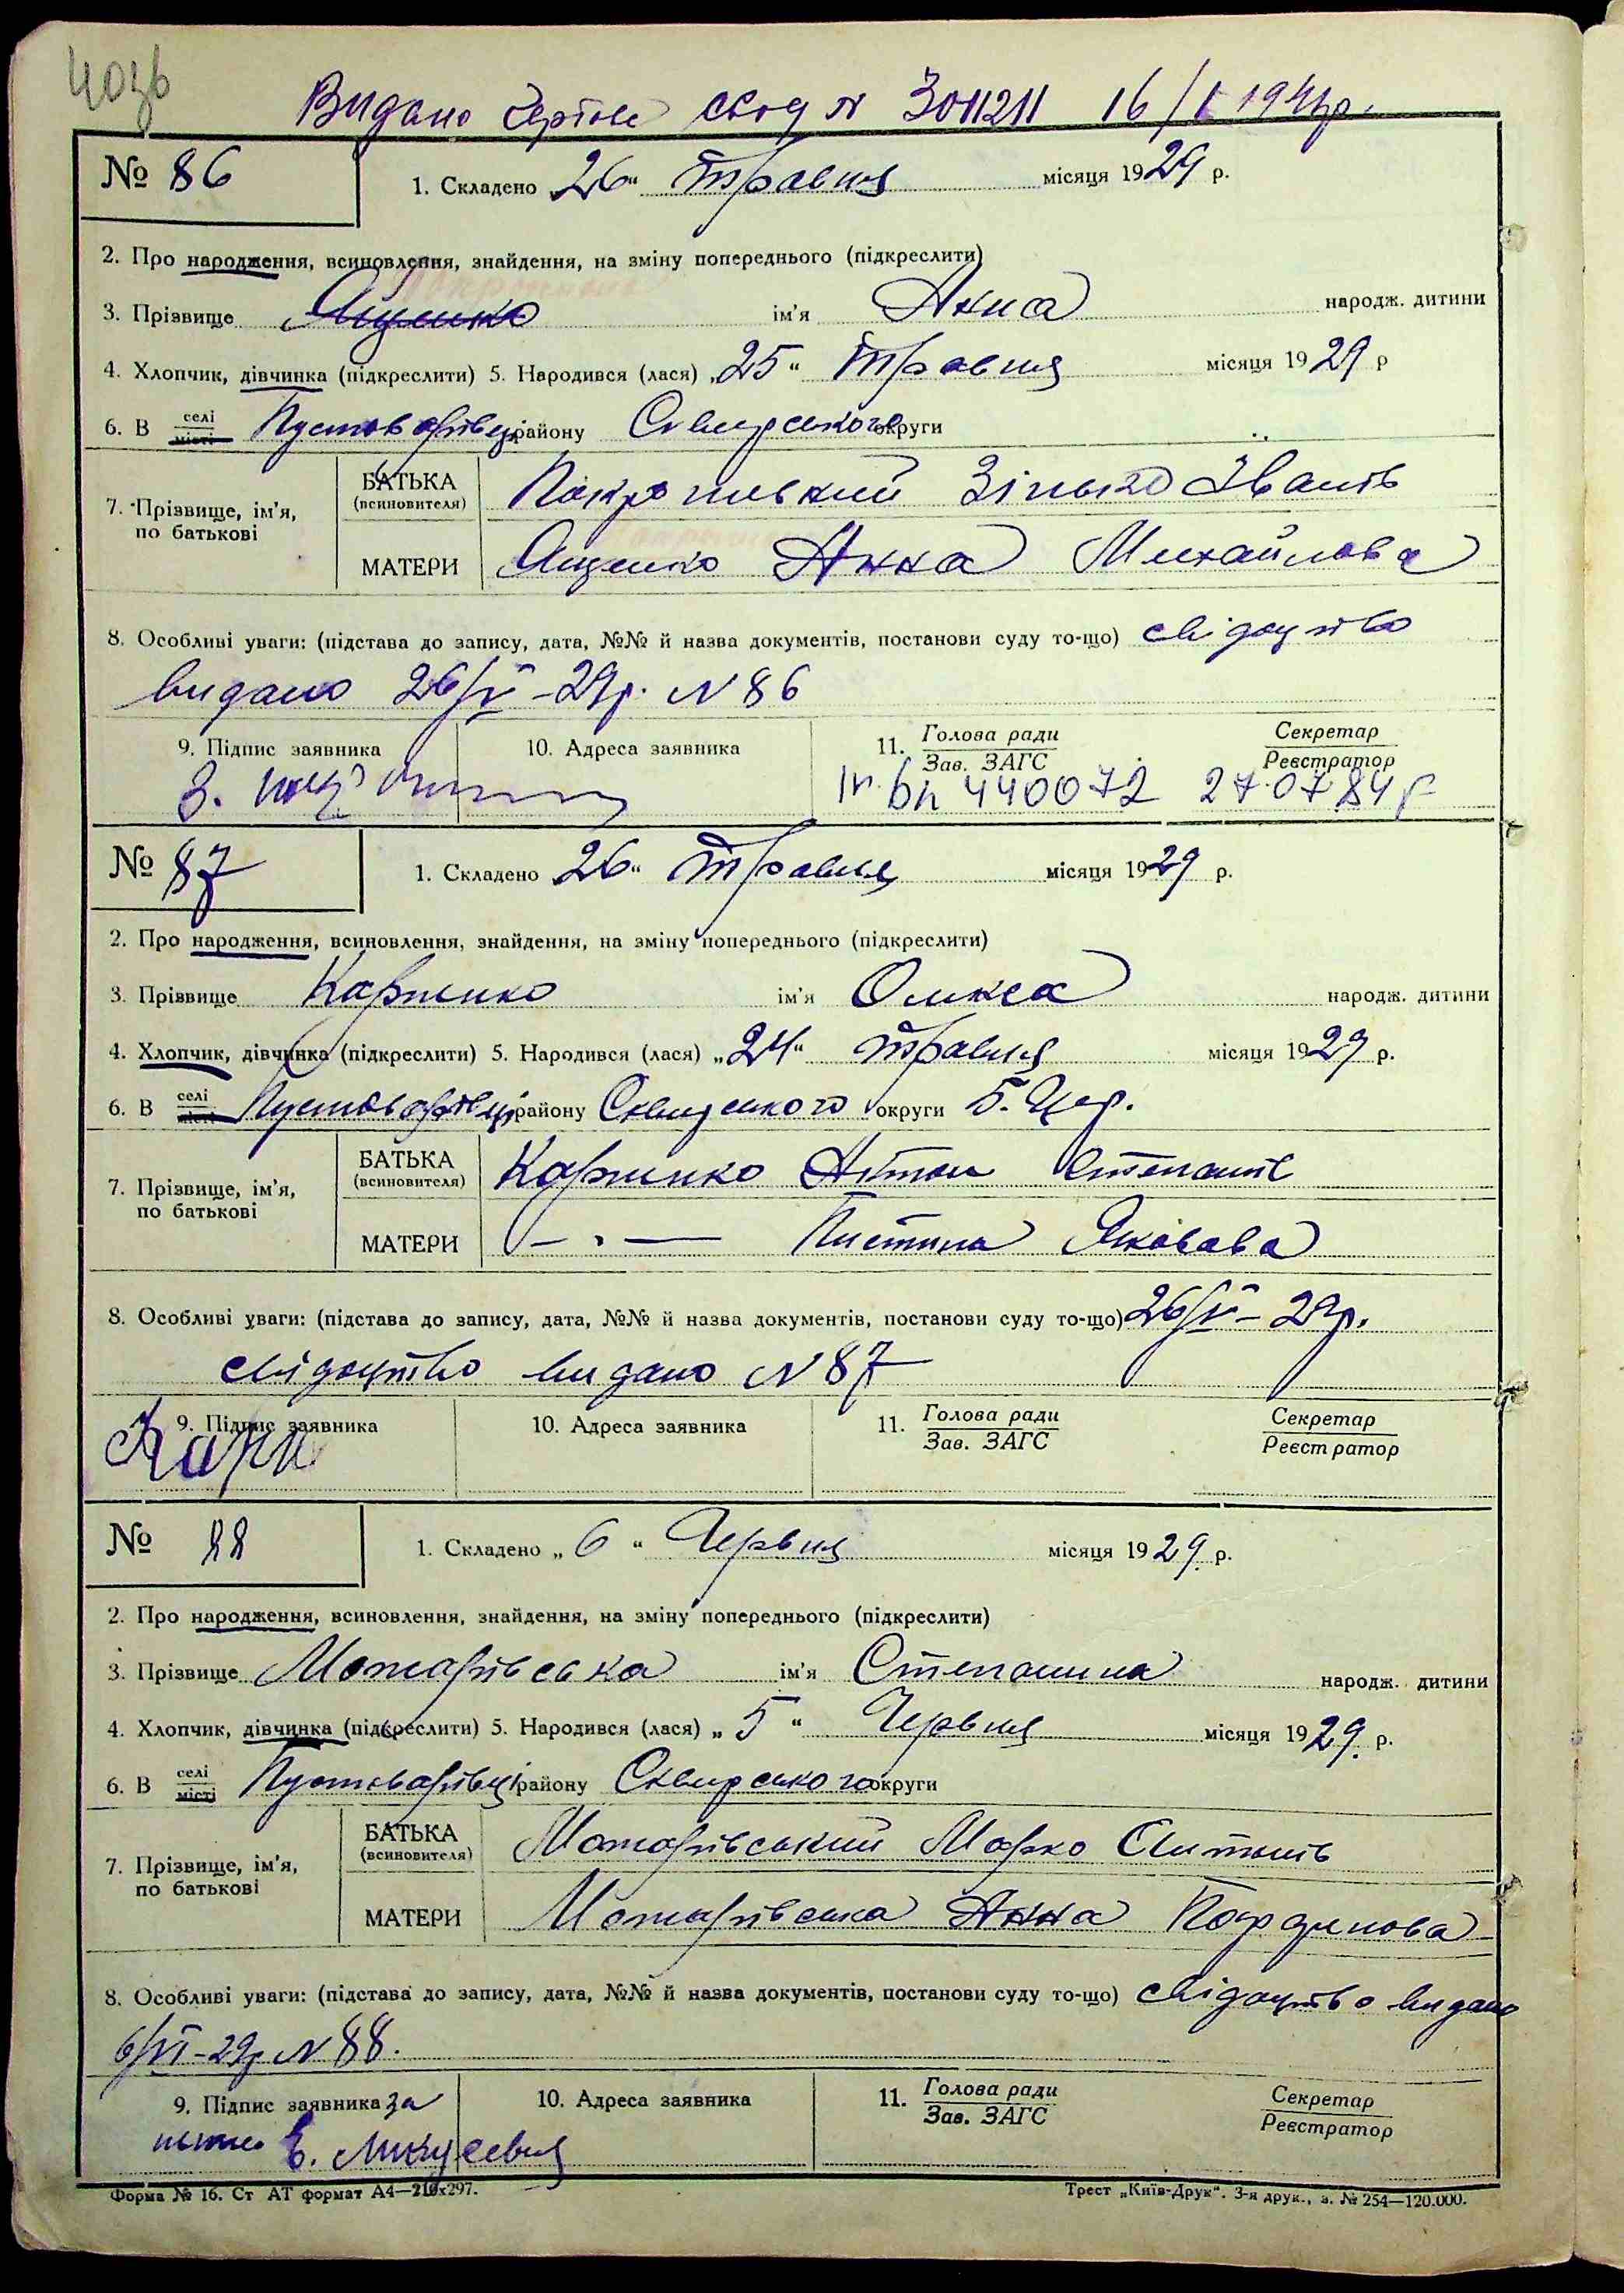 Видано свід № 3011211 16/I
№ 86
1. Складено „26“ Травня місяця 1929 р.
2. Про народження, всиновлення, знайдення, на зміну попереднього (підкреслити)
3. Прізвище Ященко ім'я Анна народж. дитини
4. Хлопчик, дівчинка (підкреслити) 5. Народився (лася) „25“ Травня місяця 1929 р
6. В селі місті Пустоварівці району Сквирського округи
7. Прізвище, ім'я, по батькові
БАТЬКА (всиновителя) Зінько Іванів
МАТЕРИ Ященко Анна Михайлова
8. Особливі уваги: (підстава до запису, дата, №№ й назва документів, постанови суду то-що) свідоцтво
видано 26/V-29р. N 86
9. Підпис заявника 10. Адреса заявника 11. Голова ради Зав. ЗАГС Секретар Реєстратор
З. 440072 27.07.84 р
№ 87
1. Складено „26“ Травня місяця 1929 р.
2. Про народження, всиновлення, знайдення, на зміну попереднього (підкреслити)
3. Прізвище Карпенко ім'я Олекса народж. дитини
4. Хлопчик, дівчинка (підкреслити) 5. Народився (лася) „24“ Травня місяця 1929 р.
6. В селі місті Пустоварівці району Сквирського округи Б. Цер.
7. Прізвище, ім'я, по батькові
БАТЬКА (всиновителя) Карпенко Антон Степанів
МАТЕРИ — . — Пистина Яковова
8. Особливі уваги: (підстава до запису, дата, №№ й назва документів, постанови суду то-що) 26/V-29р.
свідоцтво видано N 87
9. Підпис заявника 10. Адреса заявника 11. Голова ради Зав. ЗАГС Секретар Реєстратор
Карп
№ 88
1. Складено „6“ Червня місяця 1929 р.
2. Про народження, всиновлення, знайдення, на зміну попереднього (підкреслити)
3. Прізвище Мотарівська ім'я Степанина народж. дитини
4. Хлопчик, дівчинка (підкреслити) 5. Народився (лася) „5“ Червня місяця 1929. р.
6. В селі місті Пустоварівці району Сквирського округи
7. Прізвище, ім'я, по батькові
БАТЬКА (всиновителя) Мотарівський Марко
МАТЕРИ Мотарівська Анна
8. Особливі уваги: (підстава до запису, дата, №№ й назва документів, постанови суду то-що) свідоцтво видано
6/VI-29р N 88.
9. Підпис заявника за 10. Адреса заявника 11. Голова ради Зав. ЗАГС Секретар Реєстратор
Форма № 16. Ст АТ формат А4—210х297. Трест „Київ-Друк“. 3-я друк., з. № 254—120.000.